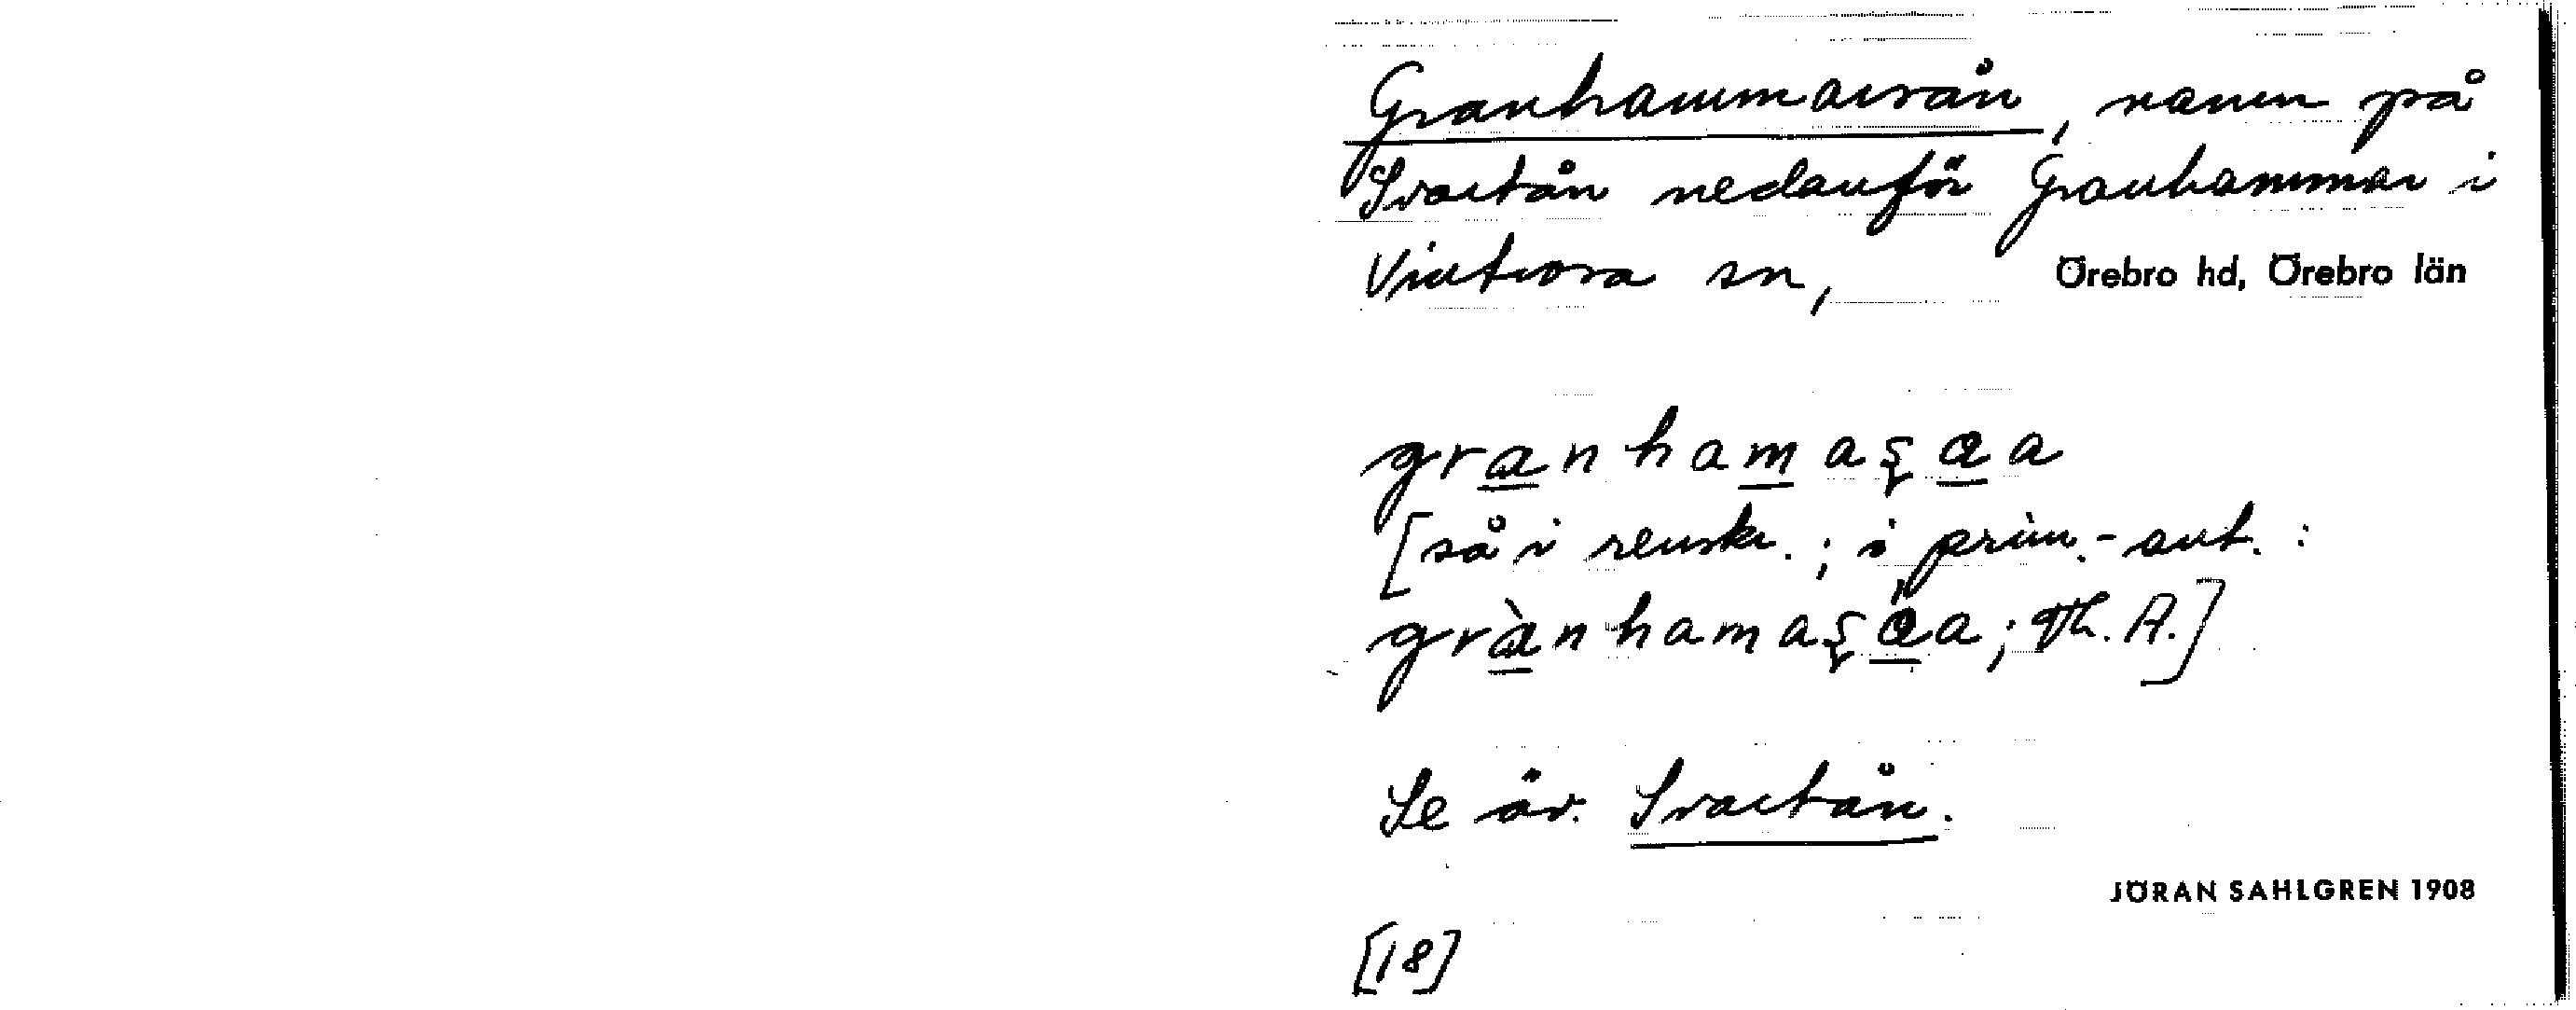 Granhammarsån, namn på
Svartån nedanför Granhammar i
Vintrosa sn, Örebro hd, Örebro län
granhamaʂɑa
[så i renskr.; i prim.-ant.:
grànhamaʂɑ́a; Th. A.]
Se äv. Svartån.
JÖRAN SAHLGREN 1908
[18]